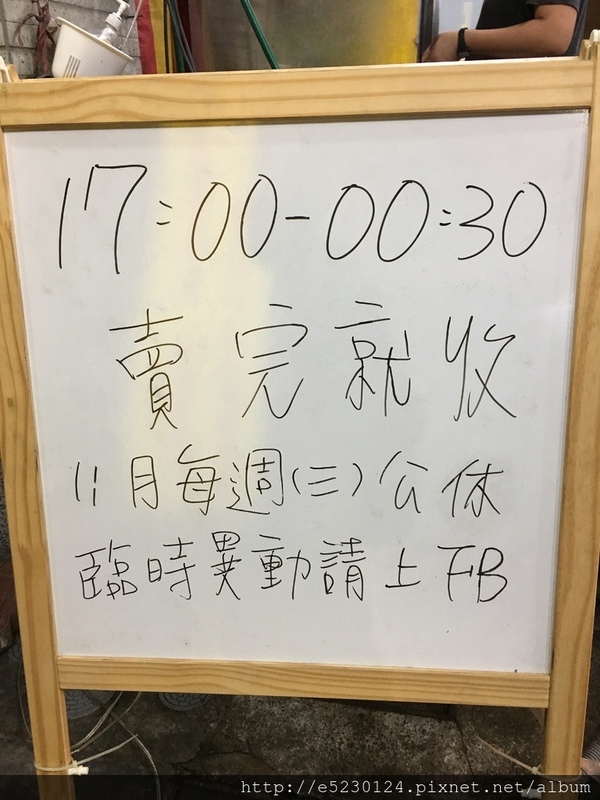 17:00-00:30
賣完就收
11月每週(三)公休
臨時異動請上FB
http://e5230124.pixnet.net/album